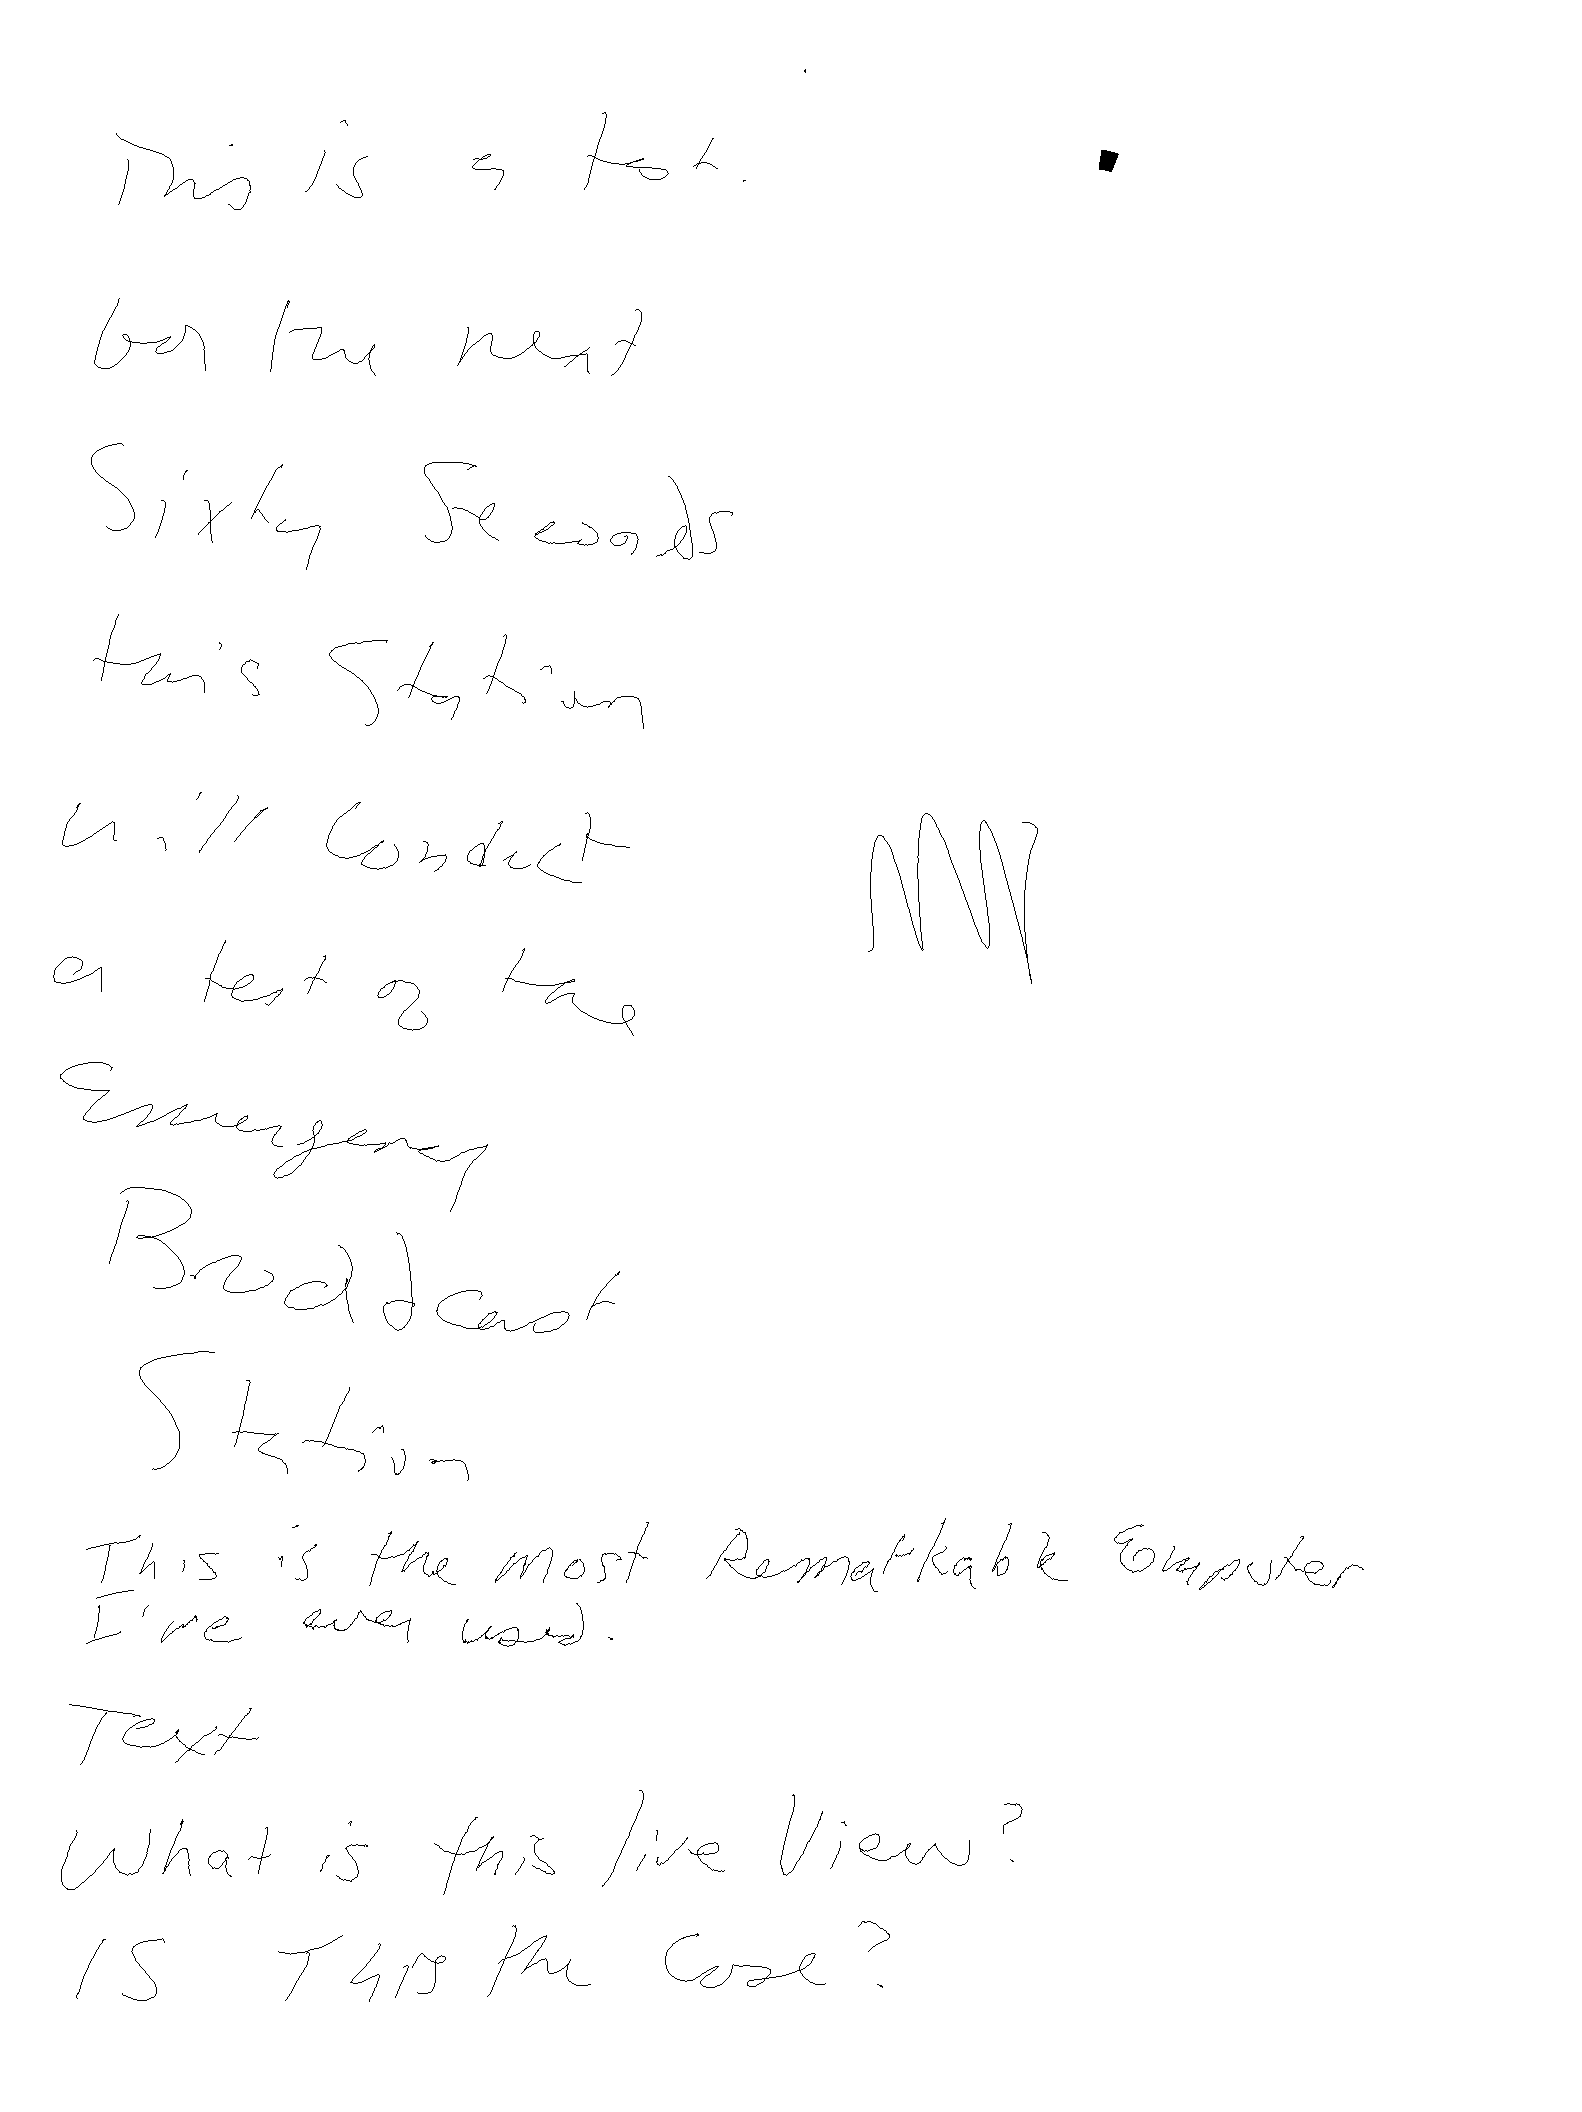 This is a test.
for the next
Sixty Seconds
this Station
will Conduct
a test of the
Emergency
Broadcast
Station
This is the most Remarkable Computer
I've ever used.
Text
What is this live View?
IS This the Case?